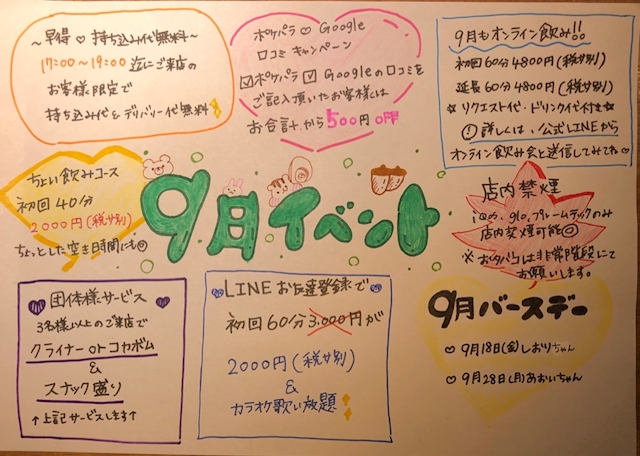 ～早得♡持ち込み代無料～
17:00～19:00迄にご来店の
お客様限定で
持ち込み代&デリバリー代無料
ポケパラ♡Google
口コミキャンペーン
☑ポケパラ☑Googleの口コミを
ご記入頂いたお客様は
お合計から500円OFF
9月もオンライン飲み!!
初回60分4800円(税サ別)
延長60分4800円(税サ別)
☆リクエスト代・ドリンク代付き☆
!詳しくは、公式LINEから
オンライン飲み会と送信してみてね♡
ちょい飲みコース
初回40分
2000円(税サ別)
ちょっとした空き時間にも
9月イベント
店内禁煙
iQOS.glo.プレームテックのみ
店内喫煙可能
※おタバコは非常階段にて
お願いします。
♡団体様サービス♡
3名様以上のご来店で
クライナーorコカボム
&
スナック盛り
↑上記サービスします↑
♡LINEお友達登録で♡
初回60分3.000円が
2000円(税サ別)
&
カラオケ歌い放題
9月バースデー
♡9月18日(金)しおりちゃん
♡9月28日(月)あおいちゃん